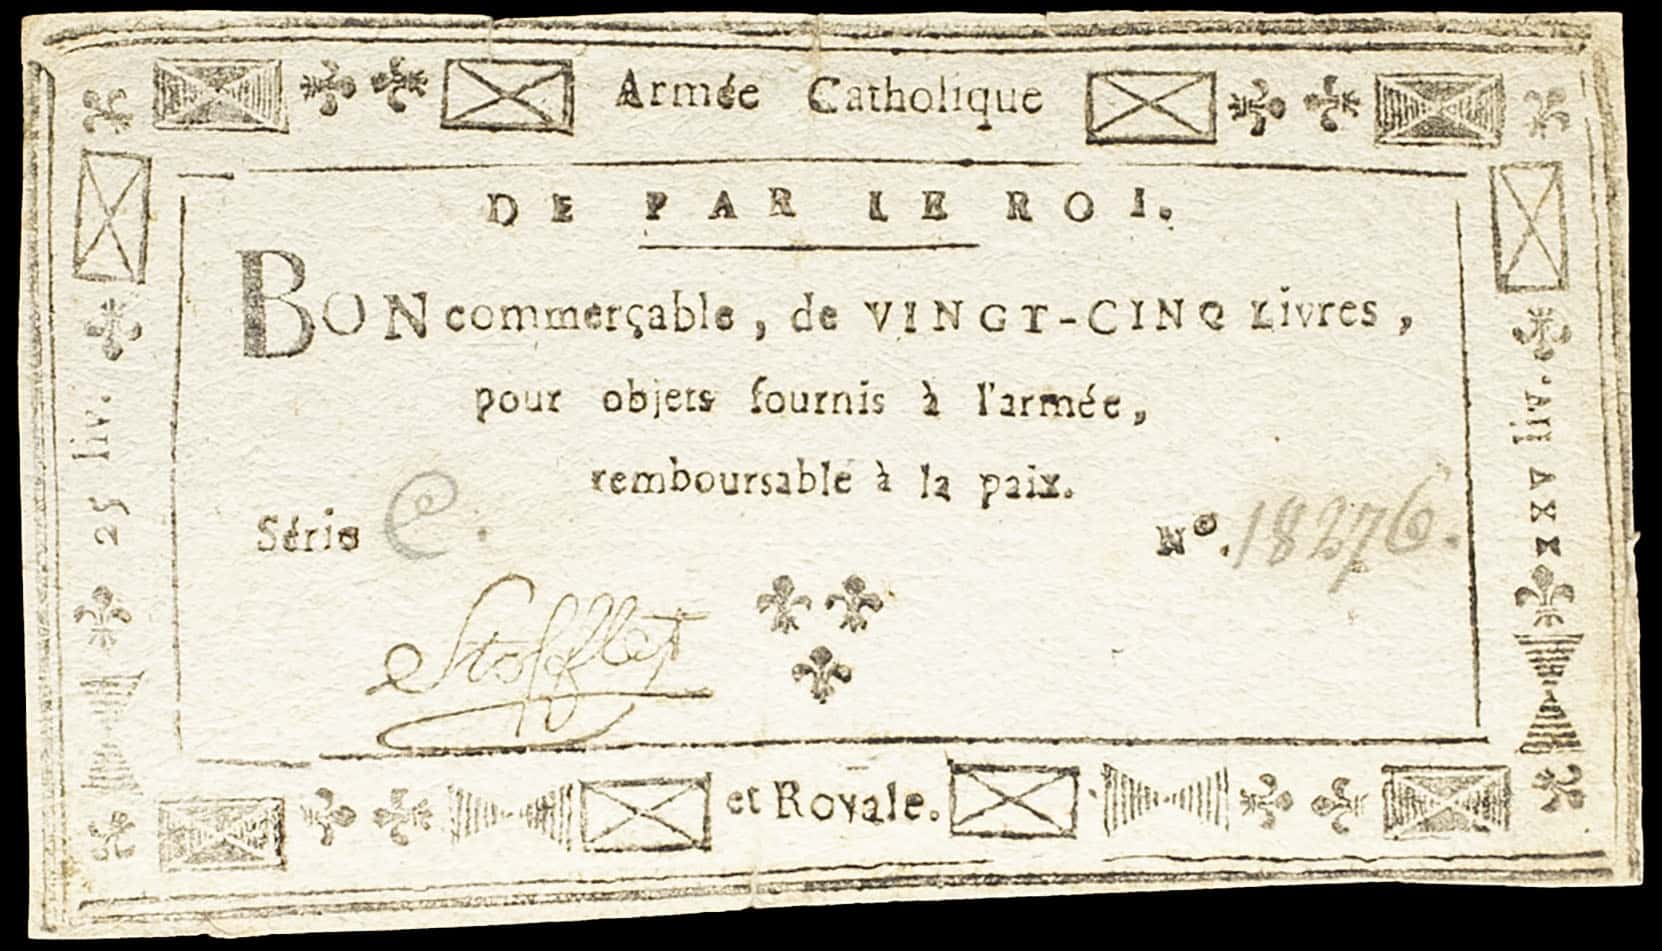 Armée Catholique
DE PAR LE ROI.
BON commerçable, de VINGT-CINQ Livres,
pour objets fournis à l'armée,
remboursable à la paix.
Série C.
Nº. 18276.
Stofflet
et Royale.
25 liv.
XXV liv.